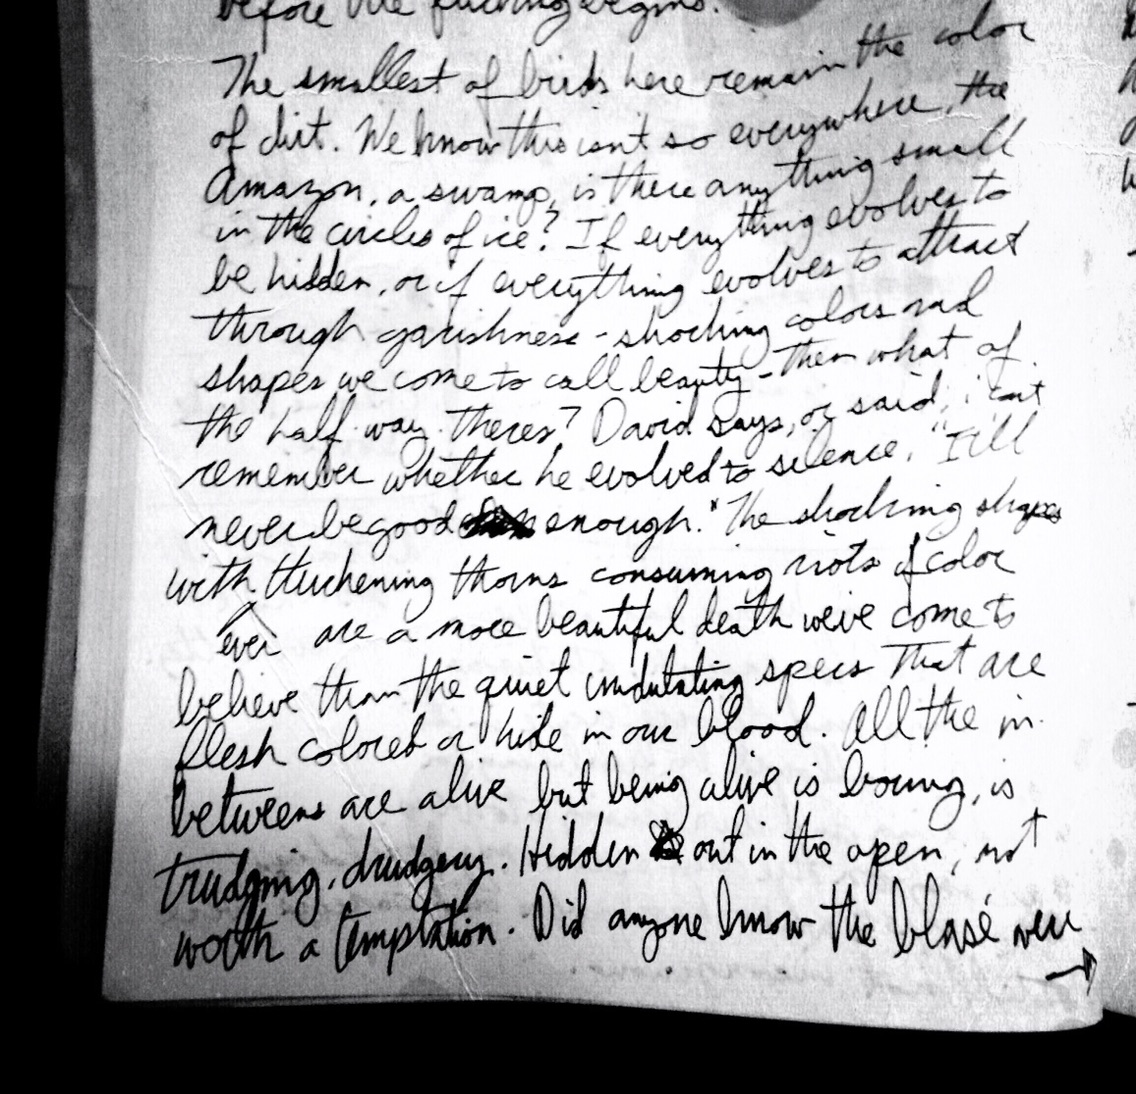 before the fucking begins.
The smallest of birds here remain the color
of dirt. We know this isn't so everywhere, the
Amazon, a swamp, is there anything small
in the circles of ice? If everything evolves to
be hidden, or if everything evolves to attract
through garishness - shocking colors and
shapes we come to call beauty - then what of
the half-way theres? David says, or said, i can't
remember whether he evolved to silence, "I'll
never be good enough." The shocking shapes
with thickening thorns consuming riots of color
ever are a more beautiful death we've come to
believe than the quiet undulating specs that are
flesh colored or hide in our blood. All the in-
betweens are alive but being alive is boring, is
trudging, drudgery. Hidden out in the open, not
worth a temptation. Did anyone know the blasé were
→